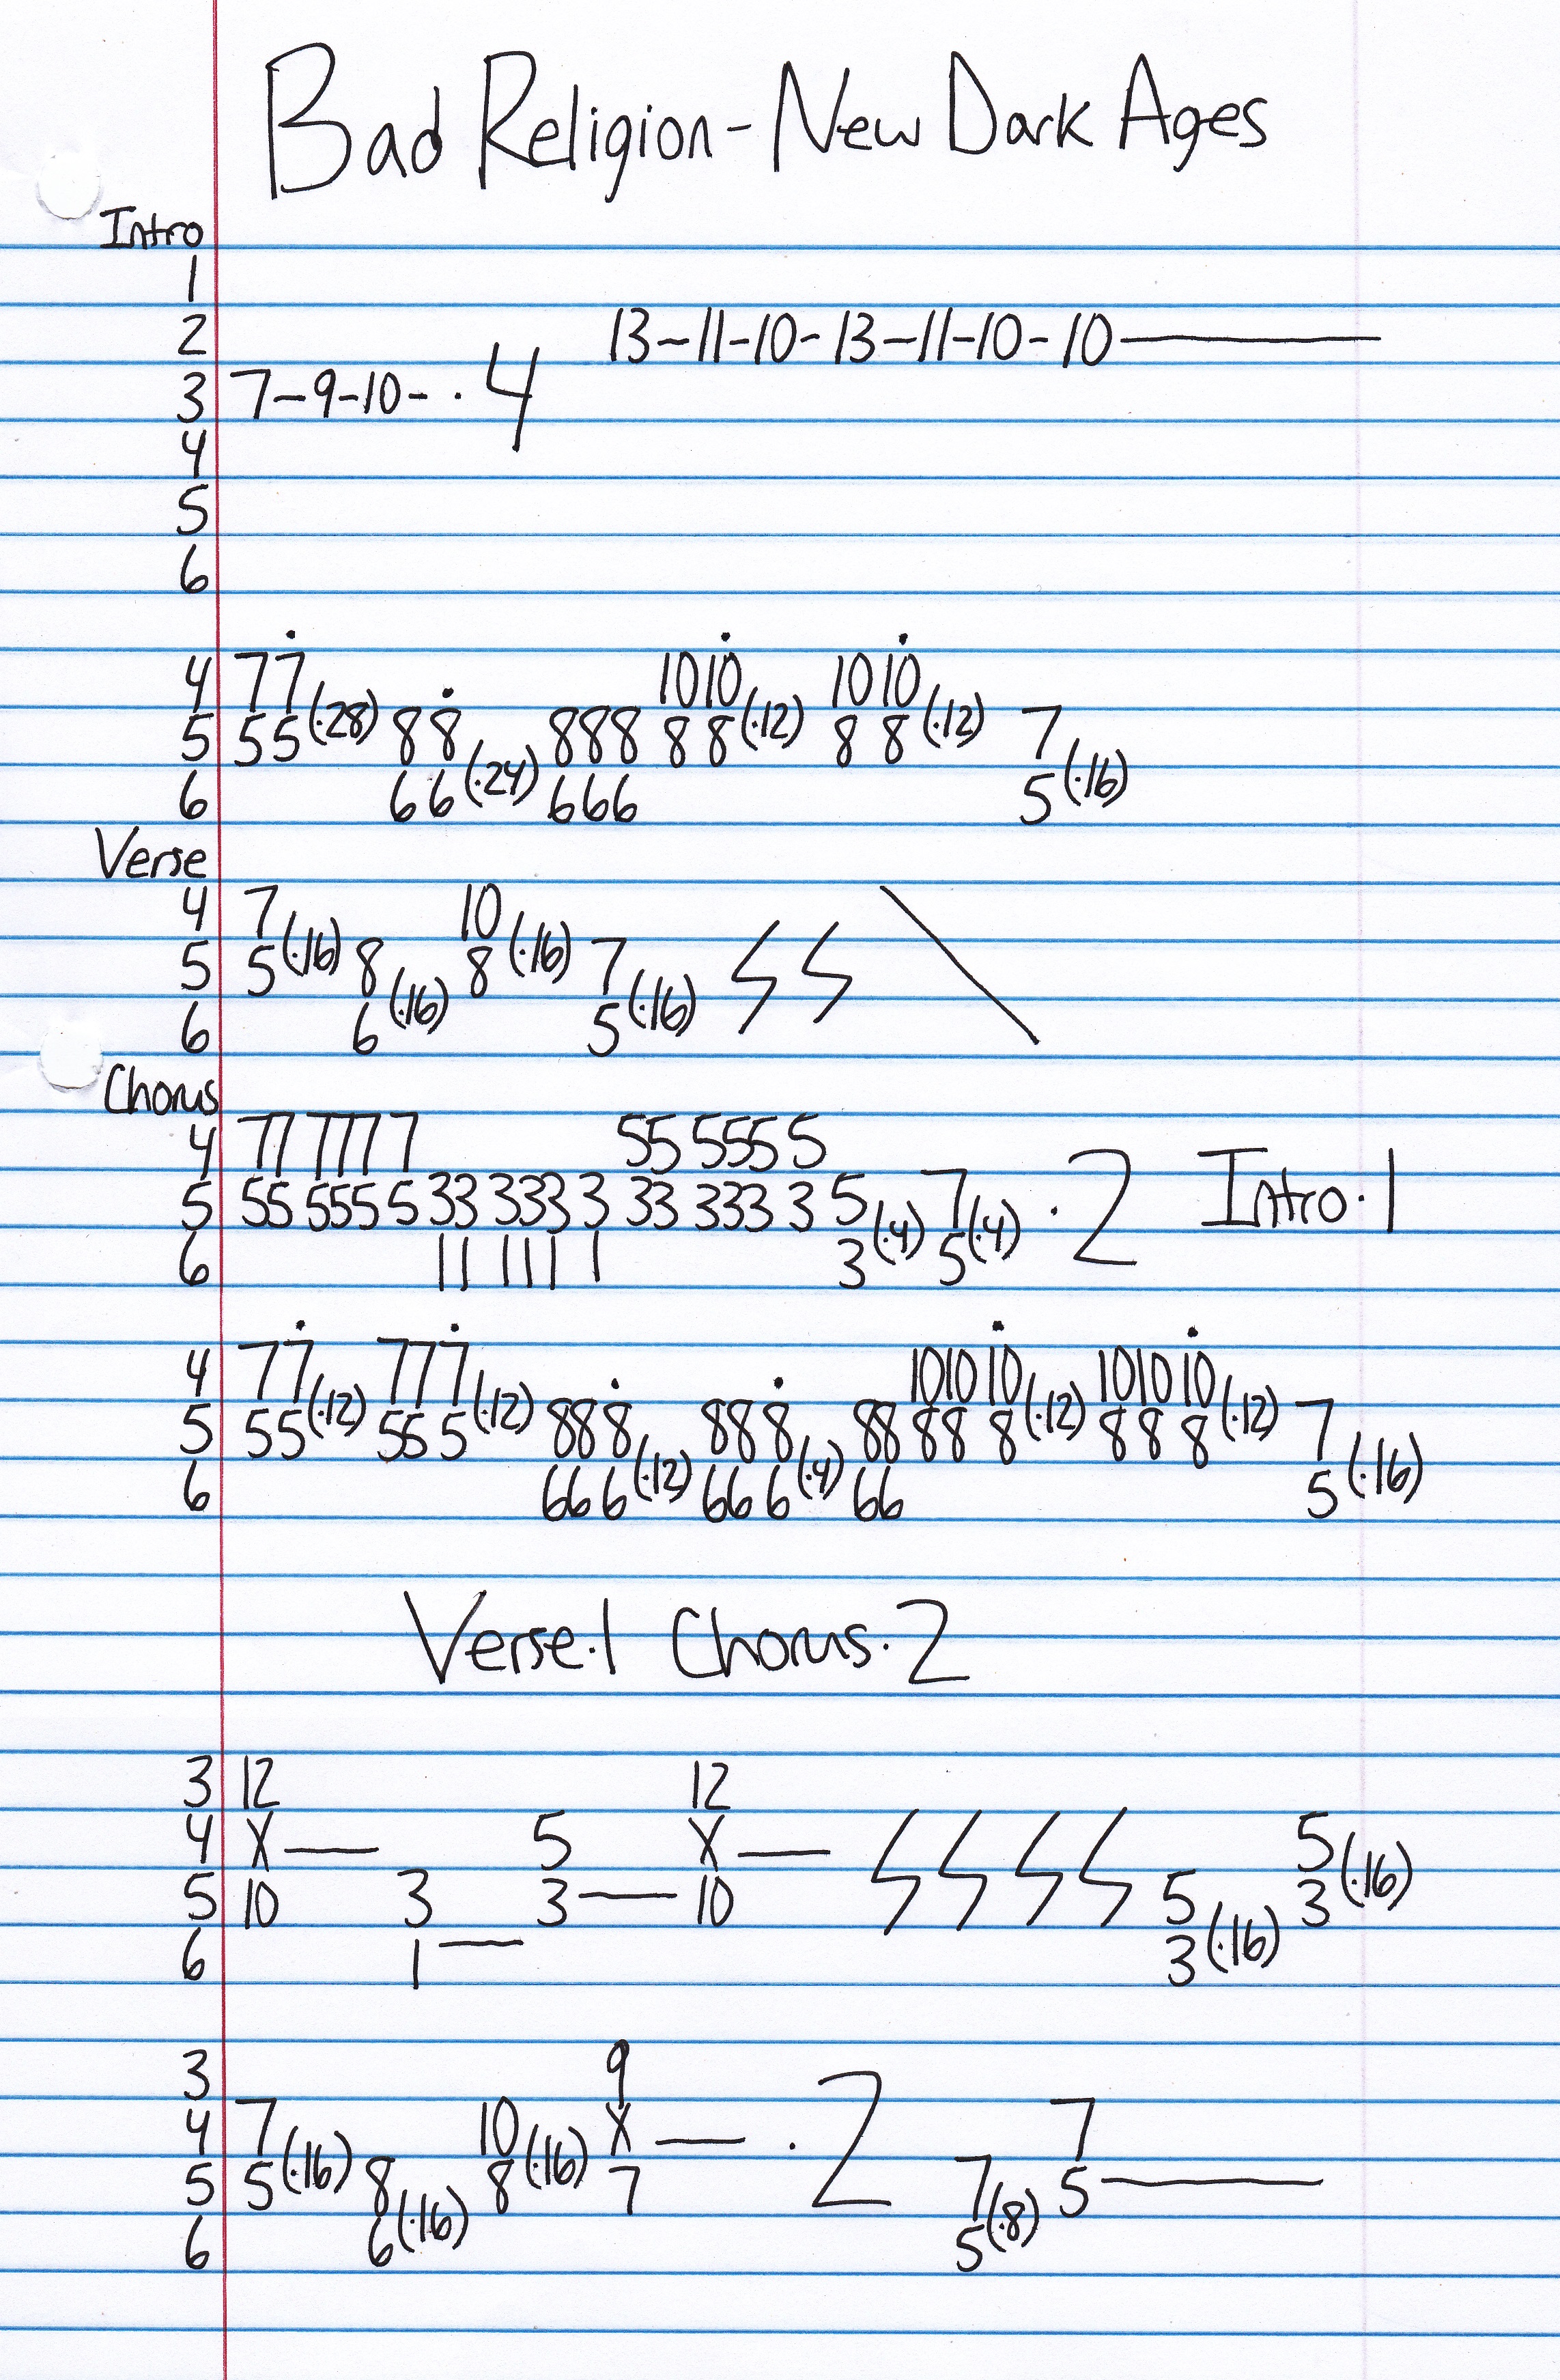 Bad Religion - New Dark Ages
Intro
1
2 13-11-10-13-11-10-10—
3 7-9-10- · 4
4
5
6
4 7 7 10 10 10 10
5 5 5 (·28) 8 8 8 8 8 8 8 (·12) 8 8 (·12) 7
6 6 6 (·24) 6 6 6 5 (·16)
Verse
4 7 10
5 5 (·16) 8 8 (·16) 7
6 6 (·16) 5 (·16)
Chorus
4 77 777 7 55 555 5
5 55 555 5 33 333 3 33 333 3 5 7 · 2 Intro·1
6 11 111 1 3 (·4) 5 (·4)
4 7 7 7 7 7 10 10 10 10 10 10
5 5 5 (·12) 5 5 5 (·12) 88 8 88 8 88 88 8 (·12) 8 8 8 (·12) 7
6 66 6 (·12) 66 6 (·4) 66 5 (·16)
Verse·1 Chorus·2
3 12 12
4 X — 5 X — 5
5 10 3 3 — 10 5 3 (·16)
6 1 — 3 (·16)
3 9
4 7 10 X — · 2 7
5 5 (·16) 8 8 (·16) 7 7 5 —
6 6 (·16) 5 (·8)